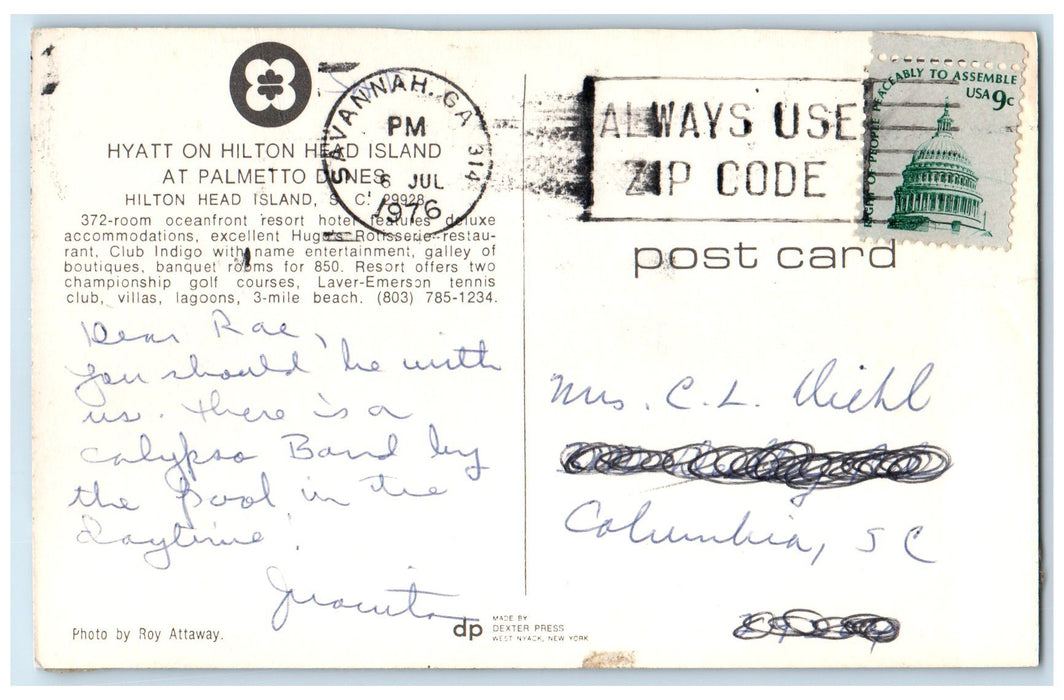 HYATT ON HILTON HEAD ISLAND
AT PALMETTO DUNES
HILTON HEAD ISLAND, S. C. 29928
372-room oceanfront resort hotel features deluxe
accommodations, excellent Hugo's Rotisserie restau-
rant, Club Indigo with name entertainment, galley of
boutiques, banquet rooms for 850. Resort offers two
championship golf courses, Laver-Emerson tennis
club, villas, lagoons, 3-mile beach. (803) 785-1234.
Dear Rae,
you should be with
us. There is a
calypso Band by
the pool in the
daytime!
Juanita
Photo by Roy Attaway.
dp MADE BY
DEXTER PRESS
WEST NYACK, NEW YORK
SAVANNAH, GA 314
PM
6 JUL
1976
ALWAYS USE
ZIP CODE
RIGHT OF PEOPLE PEACEABLY TO ASSEMBLE
USA 9c
post card
Mrs. C. L. Diehl
Columbia, S C